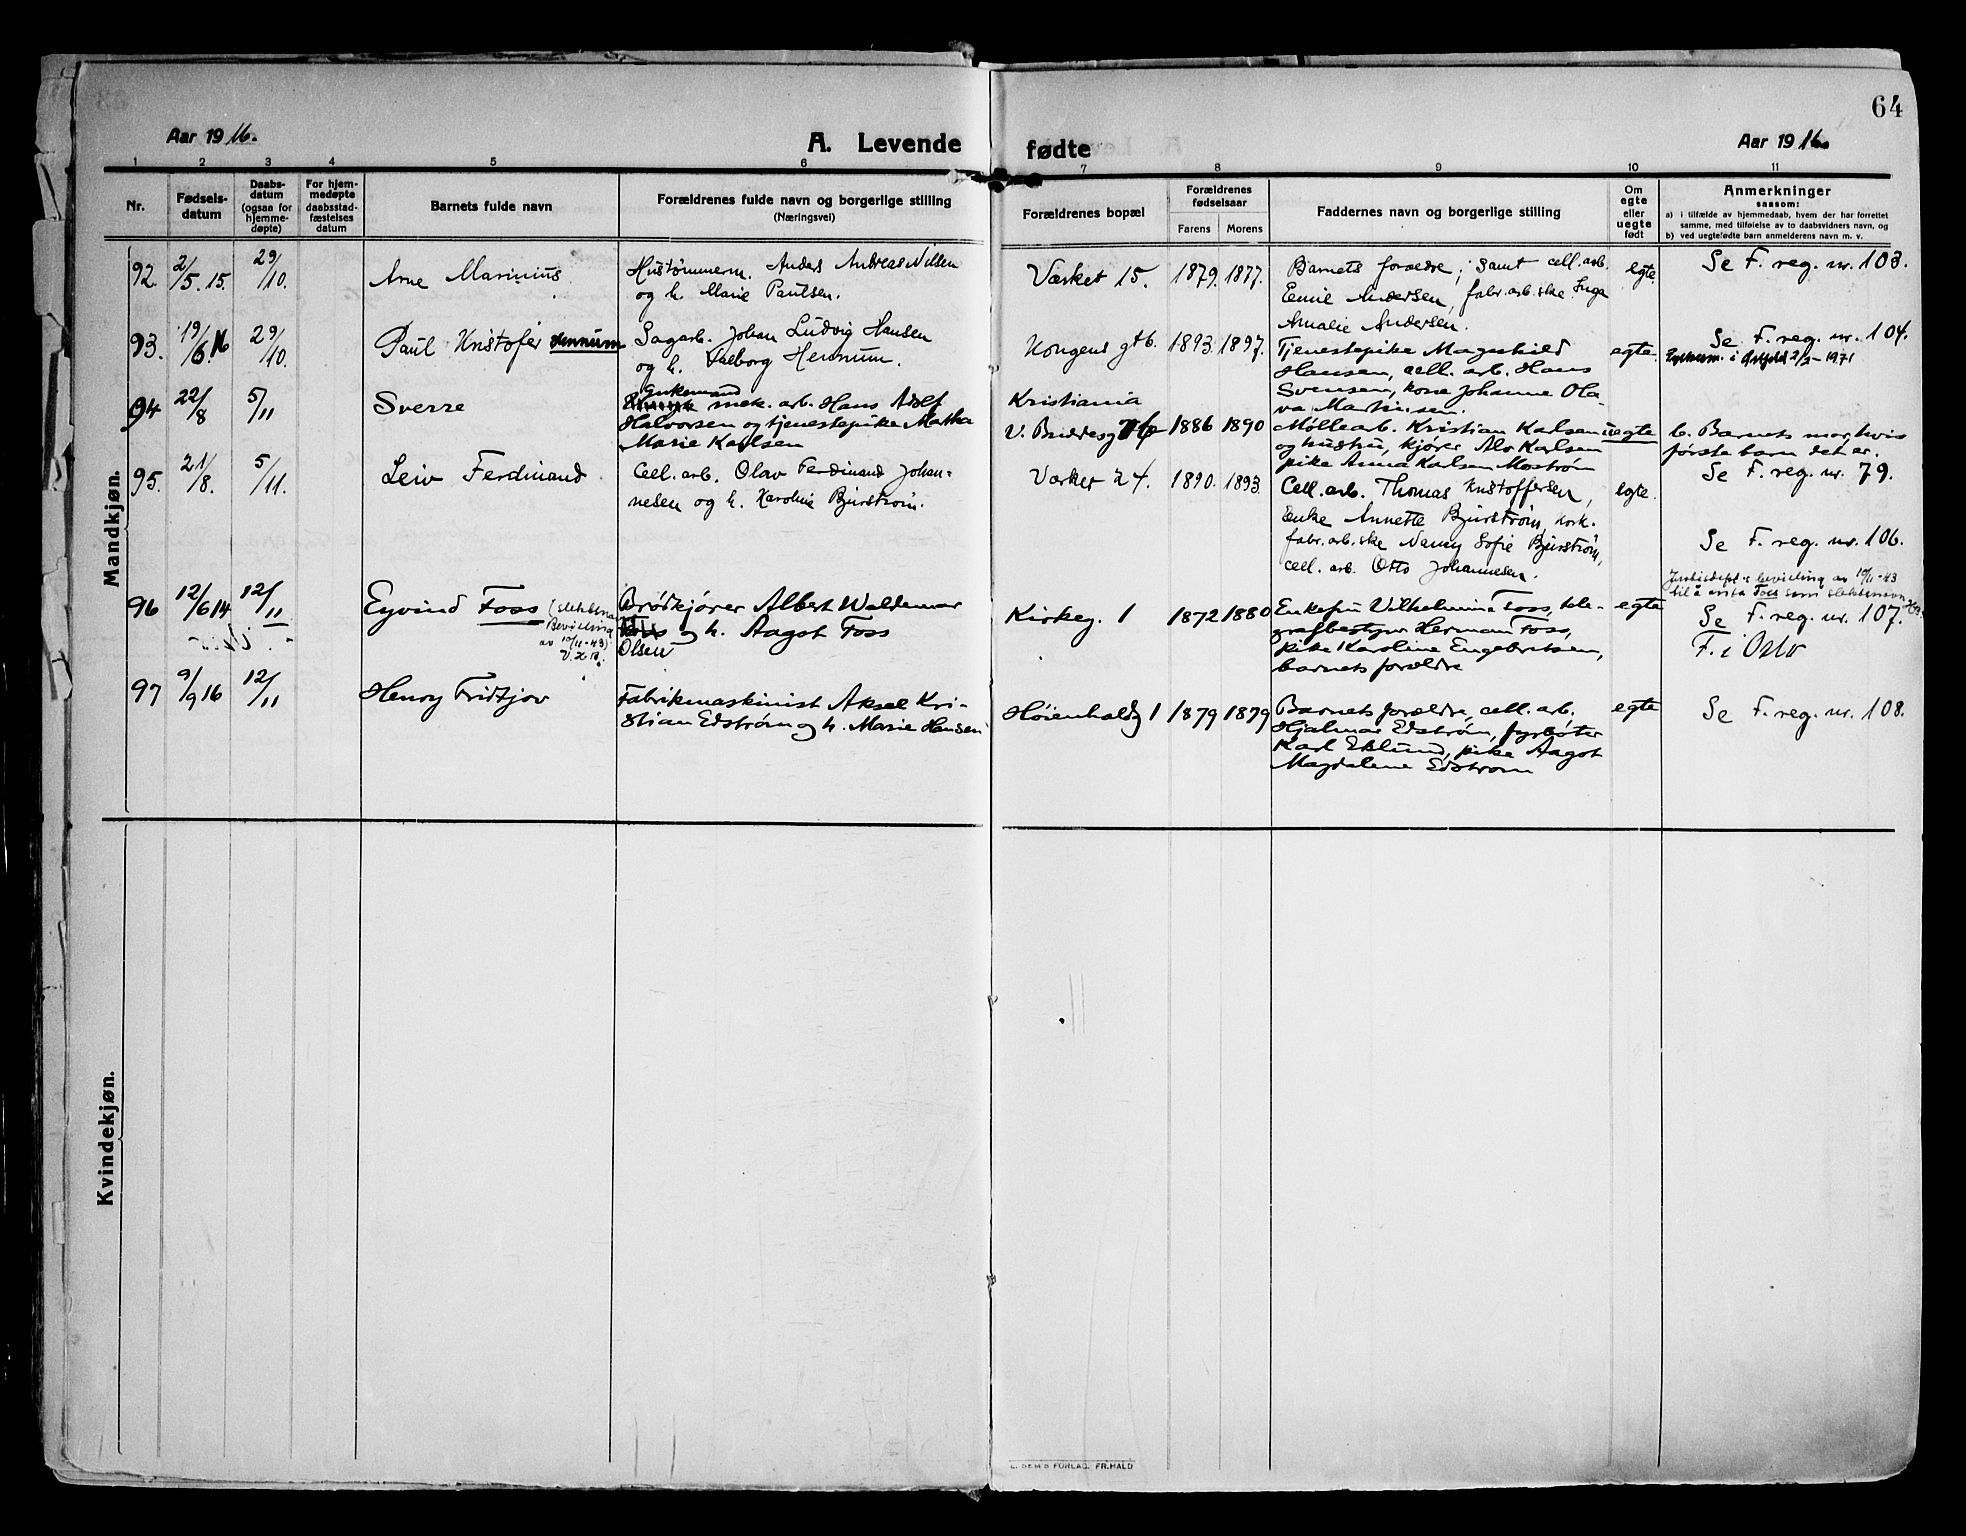 64
Aar 1916.
A. Levende fødte
Aar 1916.
1 2 3 4 5 6 7 8 9 10 11
Nr.
Fødselsdatum
Daabsdatum (ogsaa for hjemmedøpte)
For hjemmedøpte daabsstadfæstelses datum
Barnets fulde navn
Forældrenes fulde navn og borgerlige stilling
(Næringsvei)
Forældrenes bopæl
Forældrenes fødselsaar
Farens Morens
Faddernes navn og borgerlige stilling
Om egte eller uegte født
Anmerkninger
saasom:
a) i tilfælde av hjemmedaab, hvem der har forrettet
samme, med tilføielse av to daabsvidners navn, og
b) ved uegtefødte barn anmelderens navn m. v.
Mandkjøn.
92. 2/5. 15. 29/10. Arne Marinius
Hustømmerm. Anders Andreas Nilsen
og h. Marie Paulsen.
Værket 15. 1879. 1877.
Barnets forældre; samt cell. arb.
Emil Andersen, fabr. arb. ske Inga
Amalie Andersen.
egte.
Se F. reg. nr. 103.
93. 19/6 16 29/10. Paul Kristofer Hennum
Sagarb. Johan Ludvig Hansen
og h. Valborg Hennum.
Kongens gt 6. 1893. 1897.
Tjenestepike Magnhild
Hansen, cell. arb. Hans
Svensen, kone Johanne Ola-
va Martinsen.
egte.
Se F. reg. nr. 104.
i Østfold 2/2-1971
94 22/8 5/11 Sverre
Enkemand
mek. arb. Hans Adolf
Halvorsen og tjenestepike Martha
Marie Karlsen
Kristiania
1886 1890
Møllearb. Kristian Karlsen
og hustru, kjører Alv Karlsen
pike Anna Karlsen Moström
uegte
b. Barnets mor, hvis
første barn det er.
Se F. reg. nr. 79.
95. 21/8. 5/11. Leiv Ferdinand
Cell. arb. Olav Ferdinand Johan-
nesen og h. Karoline Bjurström.
Værket 24. 1890. 1893.
Cell. arb. Thomas Kristoffersen,
Enke Annette Bjurström, kork-
fabr. arb. ske Nancy Sofie Bjurström,
cell. arb. Otto Johannesen.
egte.
Se F. reg. nr. 106.
96 12/6 14 12/11 Eyvind Foss (slektsnavn
Bevilling
av 10/11-43)
Brödkjører Albert Waldemar
og h. Aagot Foss
Olsen
Kirkeg. 1 1872 1880
Enkefru Vilhelmine Foss, tele-
grafbestyrer Herman Foss,
pike Karoline Engebritsen,
barnets forældre
egte
Justisdept.s bevilling av 10/11-43
til å anta Foss som slektsnavn
Se F. reg. nr. 107.
F. i Oslo
97 9/9 16 12/11 Henry Fridtjov
Fabrikmaskinist Aksel Kri-
stian Edström og h. Marie Hansen
Høienhaldg 1 1879 1879
Barnets forældre, cell. arb.
Hjalmar Edström, fyrbøter
Karl Eklund, pike Aagot
Magdalene Edström
egte
Se F. reg. nr. 108.
Kvindekjøn.
E. SEM'S FORLAG. FR.HALD